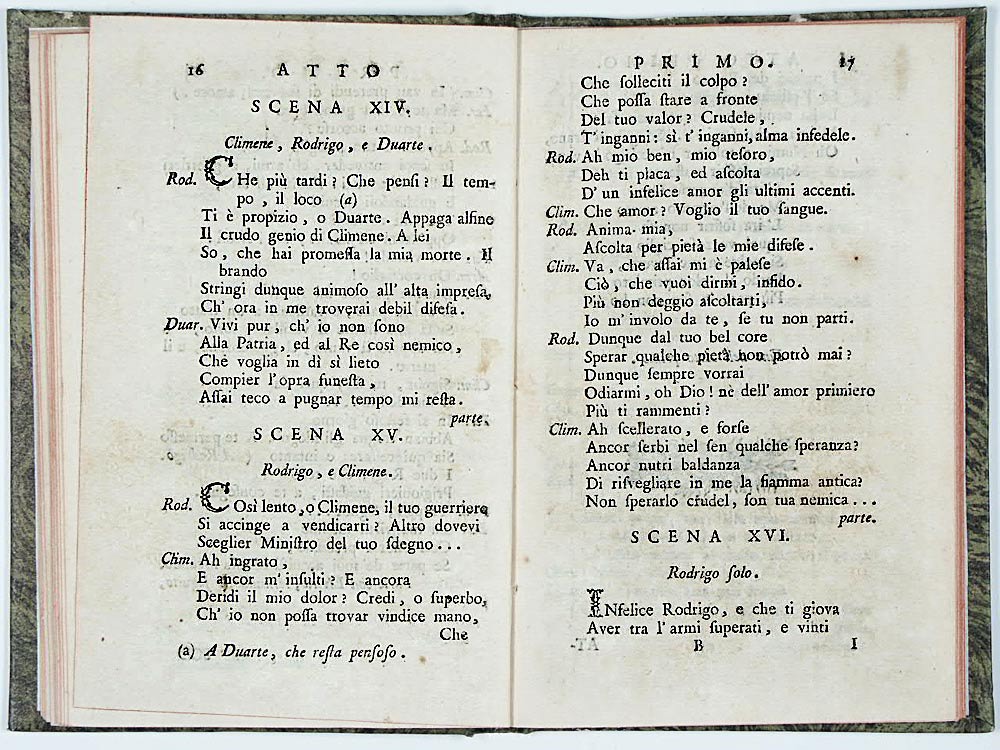 16 ATTO
SCENA XIV.
Climene, Rodrigo, e Duarte.
Rod. CHe più tardi? Che pensi? Il tem-
po, il loco (a)
Ti è propizio, o Duarte. Appaga alfine
Il crudo genio di Climene. A lei
So, che hai promeſſa la mia morte. Il
brando
Stringi dunque animoſo all' alta impreſa,
Ch' ora in me troverai debil difeſa.
Duar. Vivi pur, ch' io non ſono
Alla Patria, ed al Re così nemico,
Che voglia in dì sì lieto
Compier l' opra funeſta,
Aſſai teco a pugnar tempo mi reſta.
parte.
SCENA XV.
Rodrigo, e Climene.
Rod. COsì lento, o Climene, il tuo guerriero
Si accinge a vendicarti? Altro dovevi
Sceglier Miniſtro del tuo ſdegno...
Clim. Ah ingrato,
E ancor m' inſulti? E ancora
Deridi il mio dolor? Credi, o ſuperbo,
Ch' io non poſſa trovar vindice mano,
Che
(a) A Duarte, che reſta penſoſo.
PRIMO. 17
Che ſolleciti il colpo?
Che poſſa ſtare a fronte
Del tuo valor? Crudele,
T' inganni: sì t' inganni, alma infedele.
Rod. Ah mio ben, mio teſoro,
Deh ti placa, ed aſcolta
D' un infelice amor gli ultimi accenti.
Clim. Che amor? Voglio il tuo ſangue.
Rod. Anima mia,
Aſcolta per pietà le mie difeſe.
Clim. Va, che aſſai mi è paleſe
Ciò, che vuoi dirmi, infido.
Più non deggio aſcoltarti,
Io m' involo da te, ſe tu non parti.
Rod. Dunque dal tuo bel core
Sperar qualche pietà non potrò mai?
Dunque ſempre vorrai
Odiarmi, oh Dio! nè dell' amor primiero
Più ti rammenti?
Clim. Ah ſcellerato, e forſe
Ancor ſerbi nel ſen qualche ſperanza?
Ancor nutri baldanza
Di riſvegliare in me la fiamma antica?
Non ſperarlo crudel, ſon tua nemica...
parte.
SCENA XVI.
Rodrigo ſolo.
INfelice Rodrigo, e che ti giova
Aver tra l' armi ſuperati, e vinti
B I